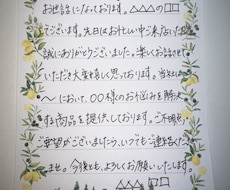 お世話になっております。△△△の□□
でございます。先日はお忙しい中ご来店いただき
誠にありがとうございました。楽しくお話させて
いただき大変嬉しく思っております。当社は
〜において、〇〇様のお悩みを解決
する商品を提供しております。ご不明点
ご要望がございましたら、いつでもご連絡ください
ませ。今後とも、よろしくお願いいたします。
△△△ □□